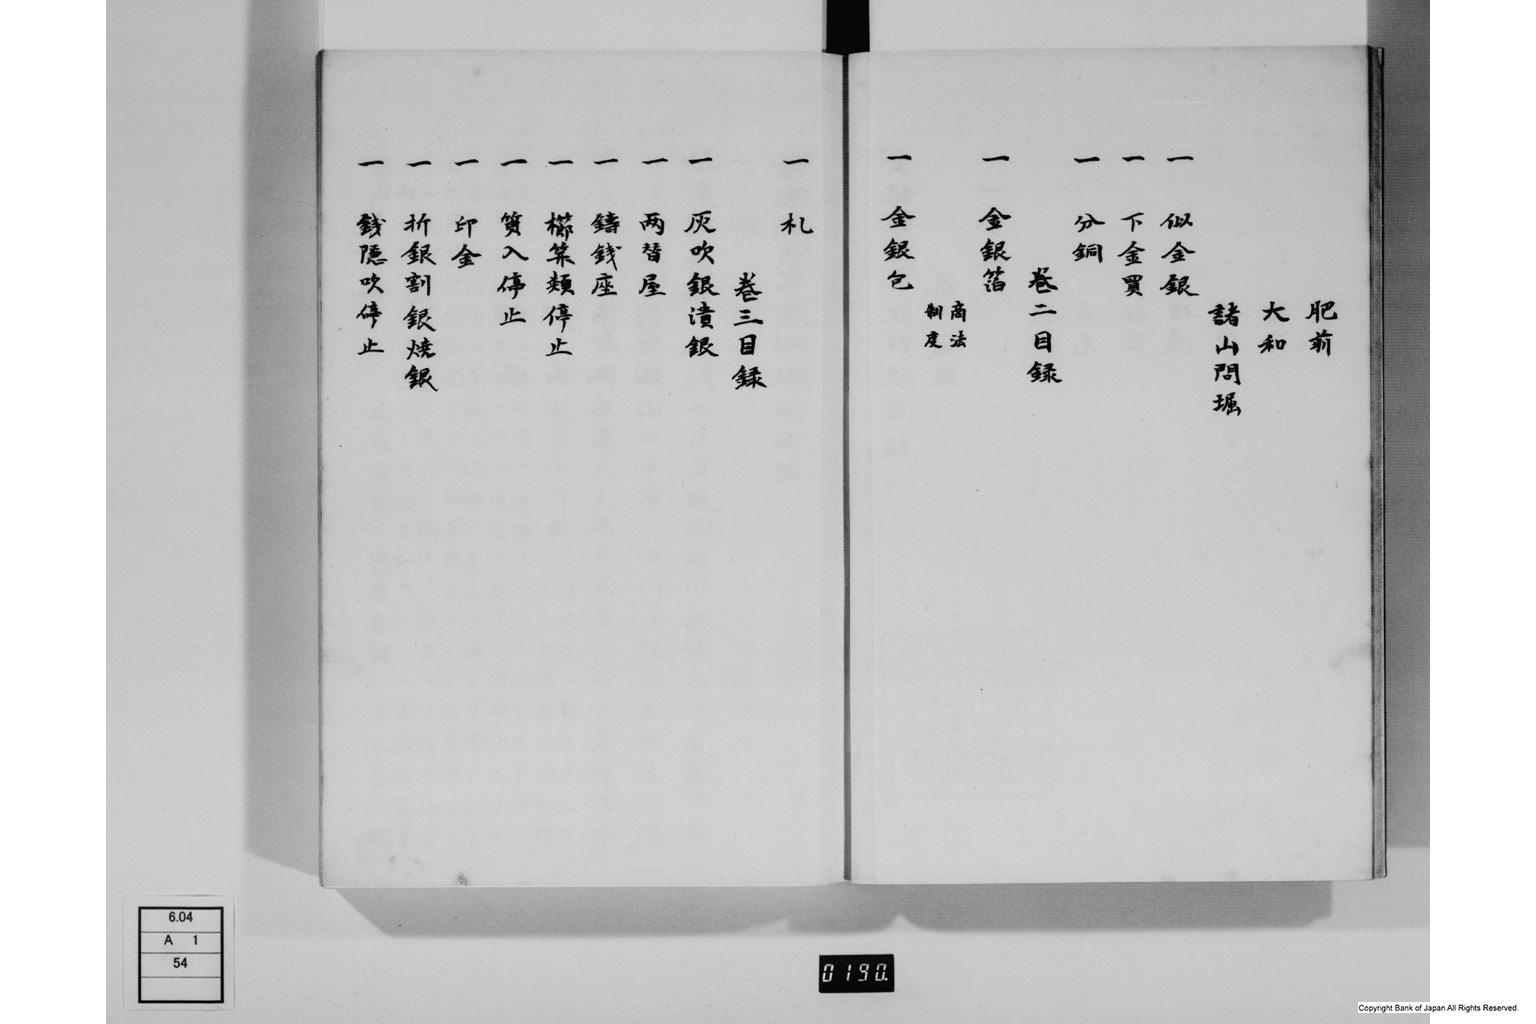 肥前
大和
諸山問堀
一 似金銀
一 下金買
一 分銅
巻二目録
一 金銀箔
商法
制度
一 金銀包
一 札
巻三目録
一 灰吹銀潰銀
一 两替屋
一 鑄銭座
一 櫛笄類停止
一 質入停止
一 印金
一 折銀割銀焼銀
一 銭隠吹停止
6.04
A 1
54
0190.
Copyright Bank of Japan All Rights Reserved.